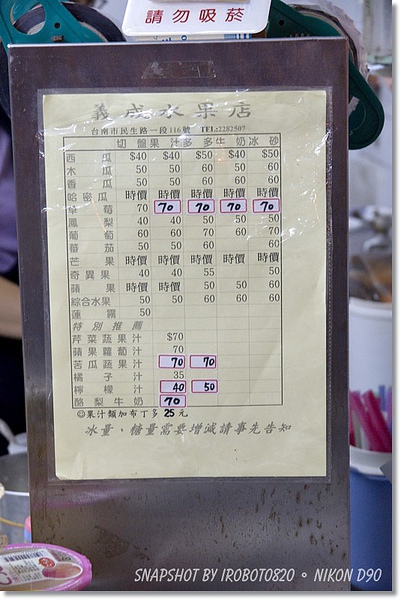 請勿吸菸
義成水果店
台南市民生路一段116號 TEL:2282507
切盤 果汁 多多 牛奶 冰砂
西瓜 $40 $40 $50 $40 $50
木瓜 50 50 60 50 60
香瓜 50 50 60 60 60
哈密瓜 時價 時價 時價 時價 時價
草莓 70 70 70 70 70
鳳梨 40 40 50 50 50
葡萄 60 60 70 60 70
蕃茄 50 50 60 60
芒果 時價 時價 時價 時價 時價
奇異果 40 40 55 50
蘋果 時價 時價 50 50 60
綜合水果 50 50 60 60 60
蓮霧 50
特別推薦
芹菜蔬果汁 $70
蘋果蘿蔔汁 70
苦瓜蔬果汁 70 70
橘子汁 35
檸檬汁 40 50
酪梨牛奶 70
☺果汁類加布丁多25元
冰量,糖量需要增減請事先告知
SNAPSHOT BY IROBOTO820。NIKON D90